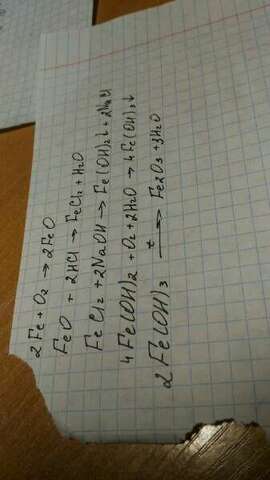 2Fe + O₂ → 2FeO
FeO + 2HCl → FeCl₂ + H₂O
FeCl₂ + 2NaOH → Fe(OH)₂↓ + 2NaCl
4Fe(OH)₂ + O₂ + 2H₂O → 4Fe(OH)₃↓
2Fe(OH)₃ —t→ Fe2O3 + 3H2O